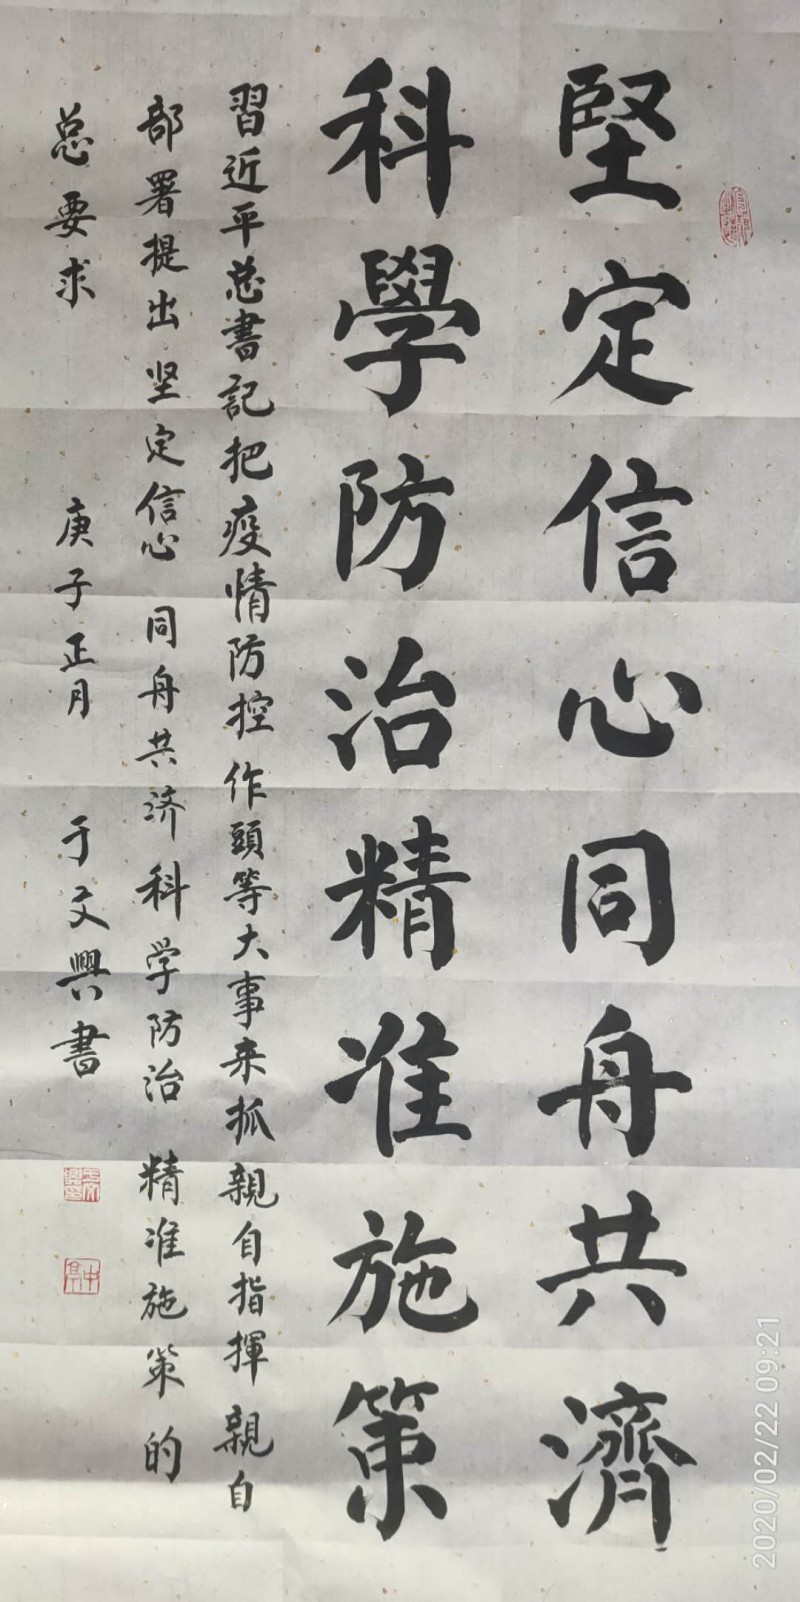 堅定信心同舟共濟
科學防治精准施策
習近平总書記把疫情防控作頭等大事来抓親自指揮親自
部署提出坚定信心同舟共济科学防治精准施策的
总要求 庚子正月 于文興書
2020/02/22 09:21